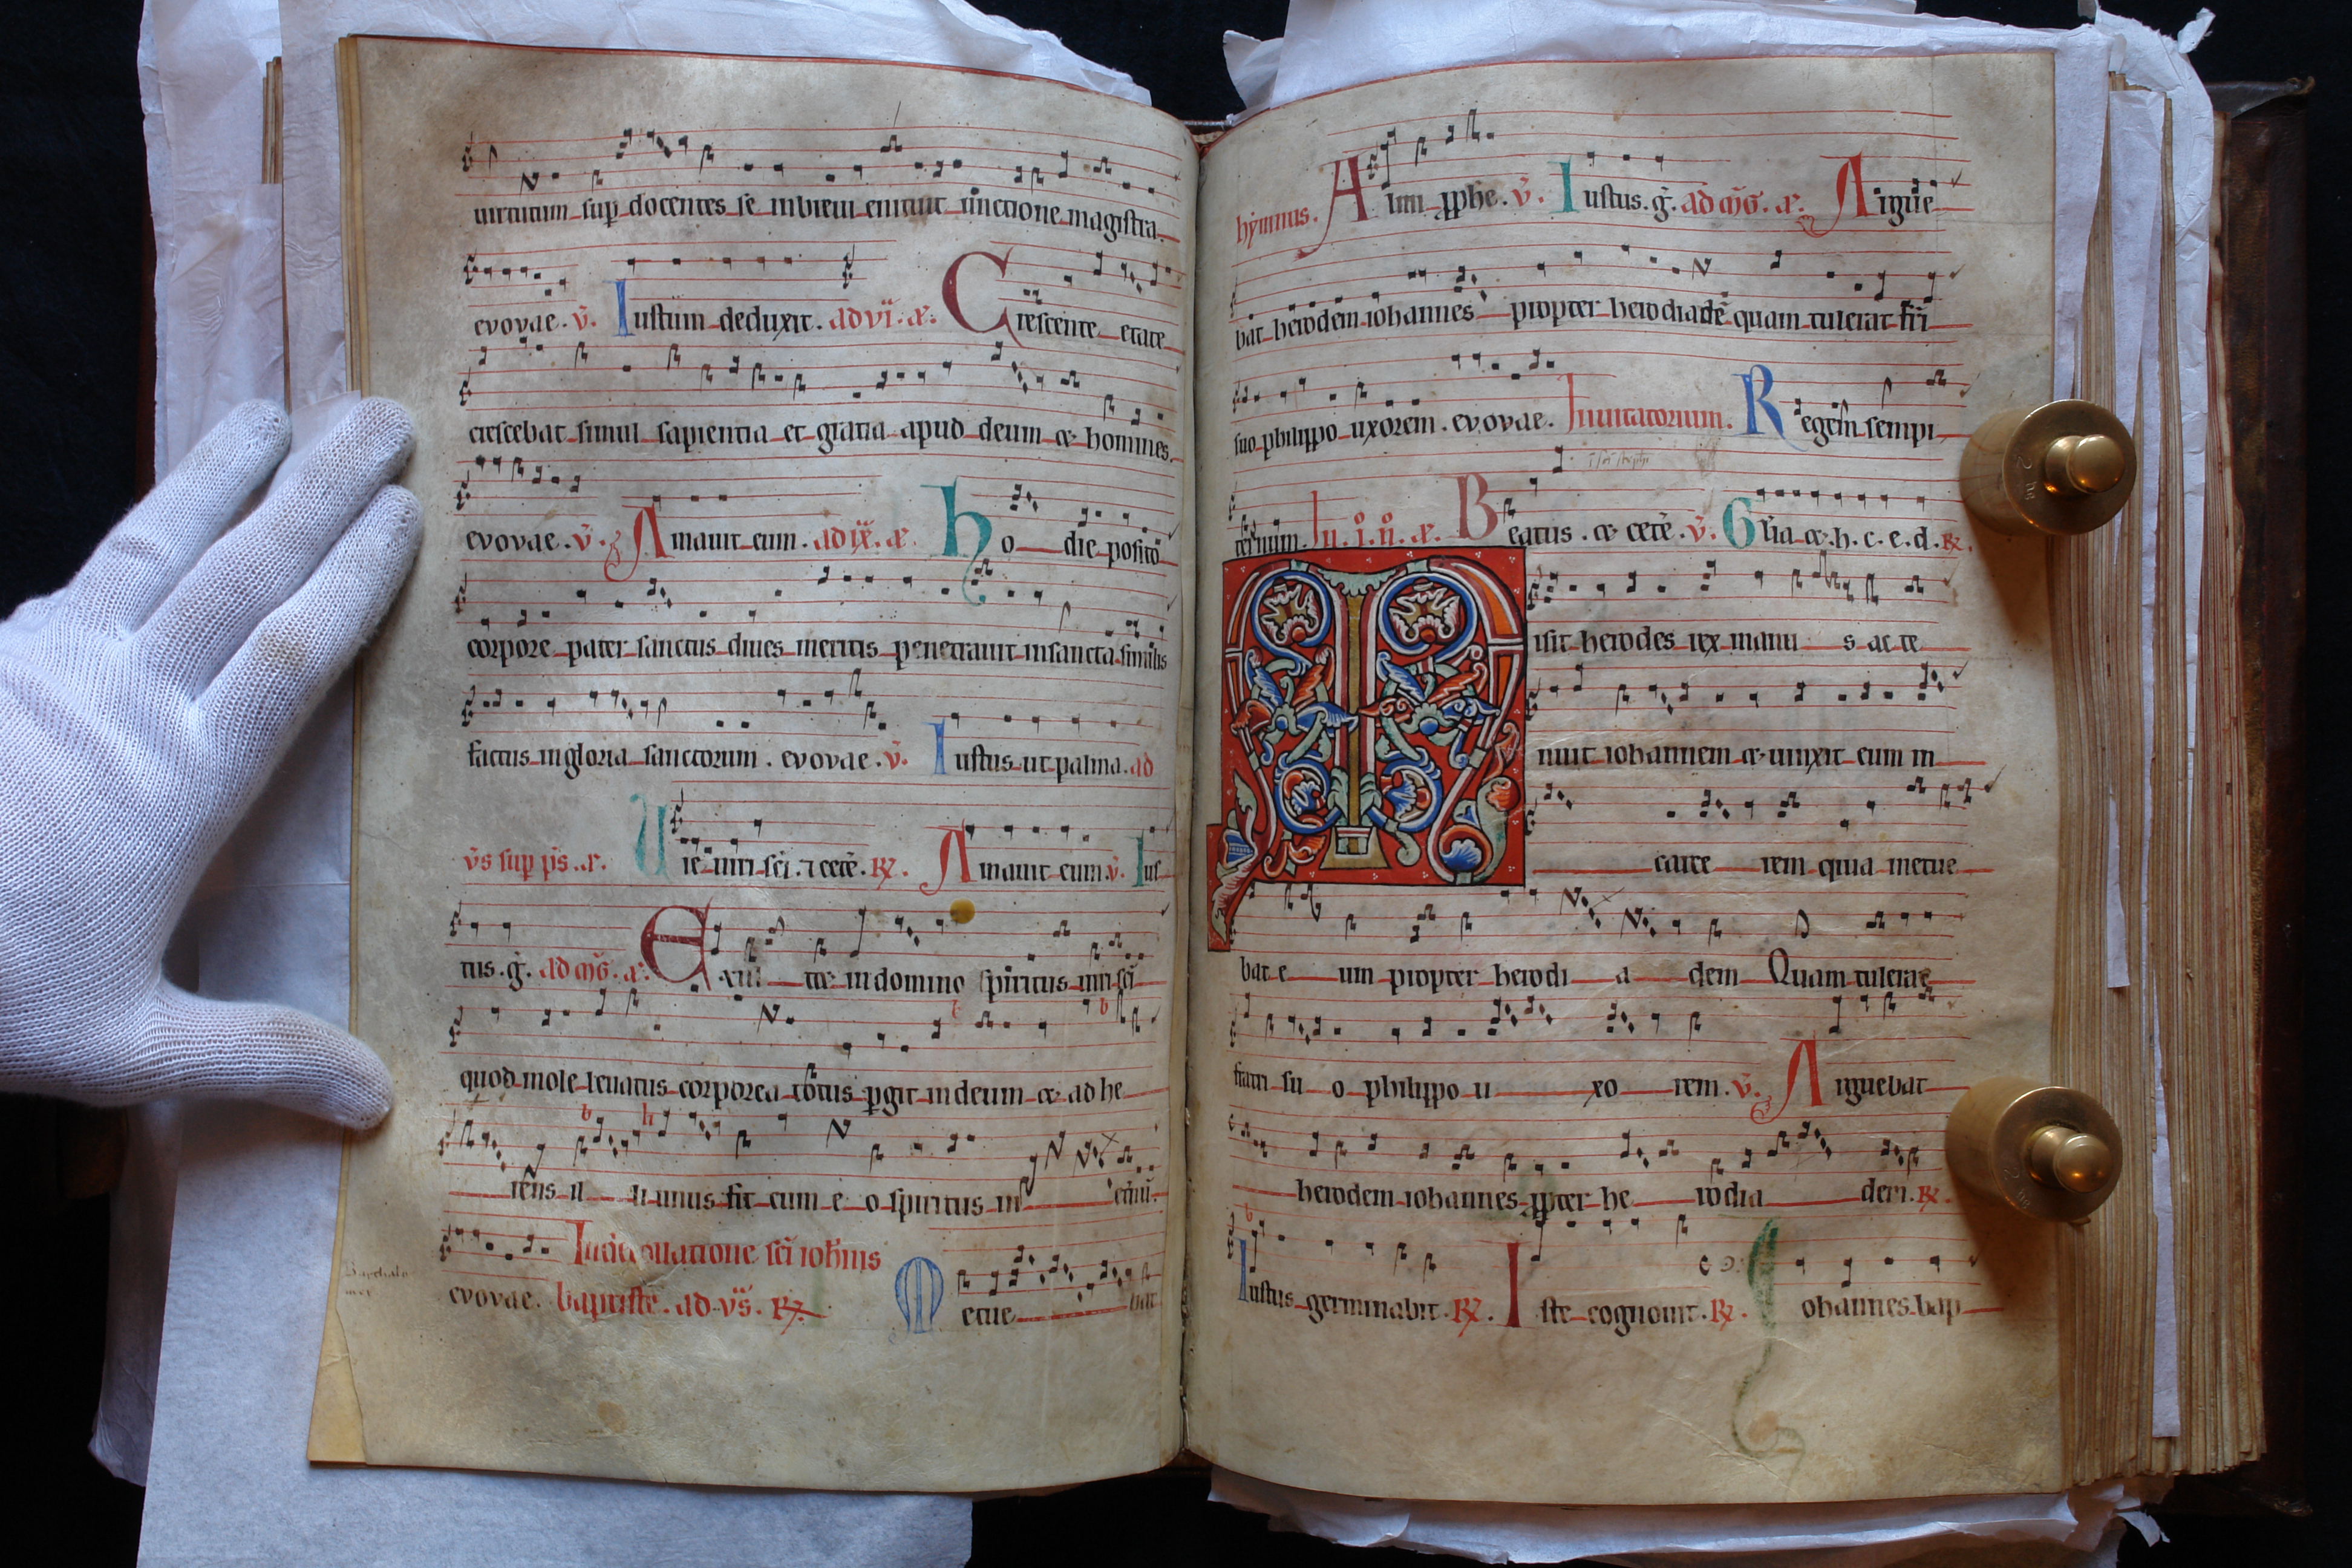 uirtutum sup docentes se inbreui enituit iunctione magistra.
evovae. v̄. Iustum deduxit. ad vi. æ. Crescente etate
crescebat simul sapientia et gratia apud deum æ homines.
evovae. v̄. Amauit eum. ad ix. æ. ho die posito
corpore pater sanctus diues meritis penetrauit insancta similis
factus ingloria sanctorum. evovae. v̄. Iustus ut palma. ad
v̄s sup p̄s. æ. sc̄i. ⁊ cete. ℟. Amauit eum. v̄. Ius
tus. ḡ. ad æ. Exul te indomino spiritus sc̄i
quod mole leuatus corporea totus pgit indeum æ ad he
rens il li unus fit cum e o spiritus in
evovae. sc̄i ioh̄nis
baptiste. ad v̄s. ℟. Metue bat
hymnus. Almi pphe. v̄. Iustus. ḡ. ad æ. Argue
bat herodem iohannes propter herodiadē quam tulerat fr̄i
suo philippo uxorem. evovae. Inuitatorium. Regem sempi
ternum. In. i. n. æ. Beatus. æ cetē. v̄. Gl̄ia æ. h. c. e. d. ℟.
Misit herodes rex manu s. ac te
nuit iohannem æ uinxit eum in
carce rem quia metue
bat e um propter herodi a dem Quam tulerat
fratri su o philippo u xo rem. v̄. Arguebat
herodem iohannes ppter he rodia dem. ℟.
Iustus germinabit. ℟. Iste cognouit. ℟. Iohannes bap